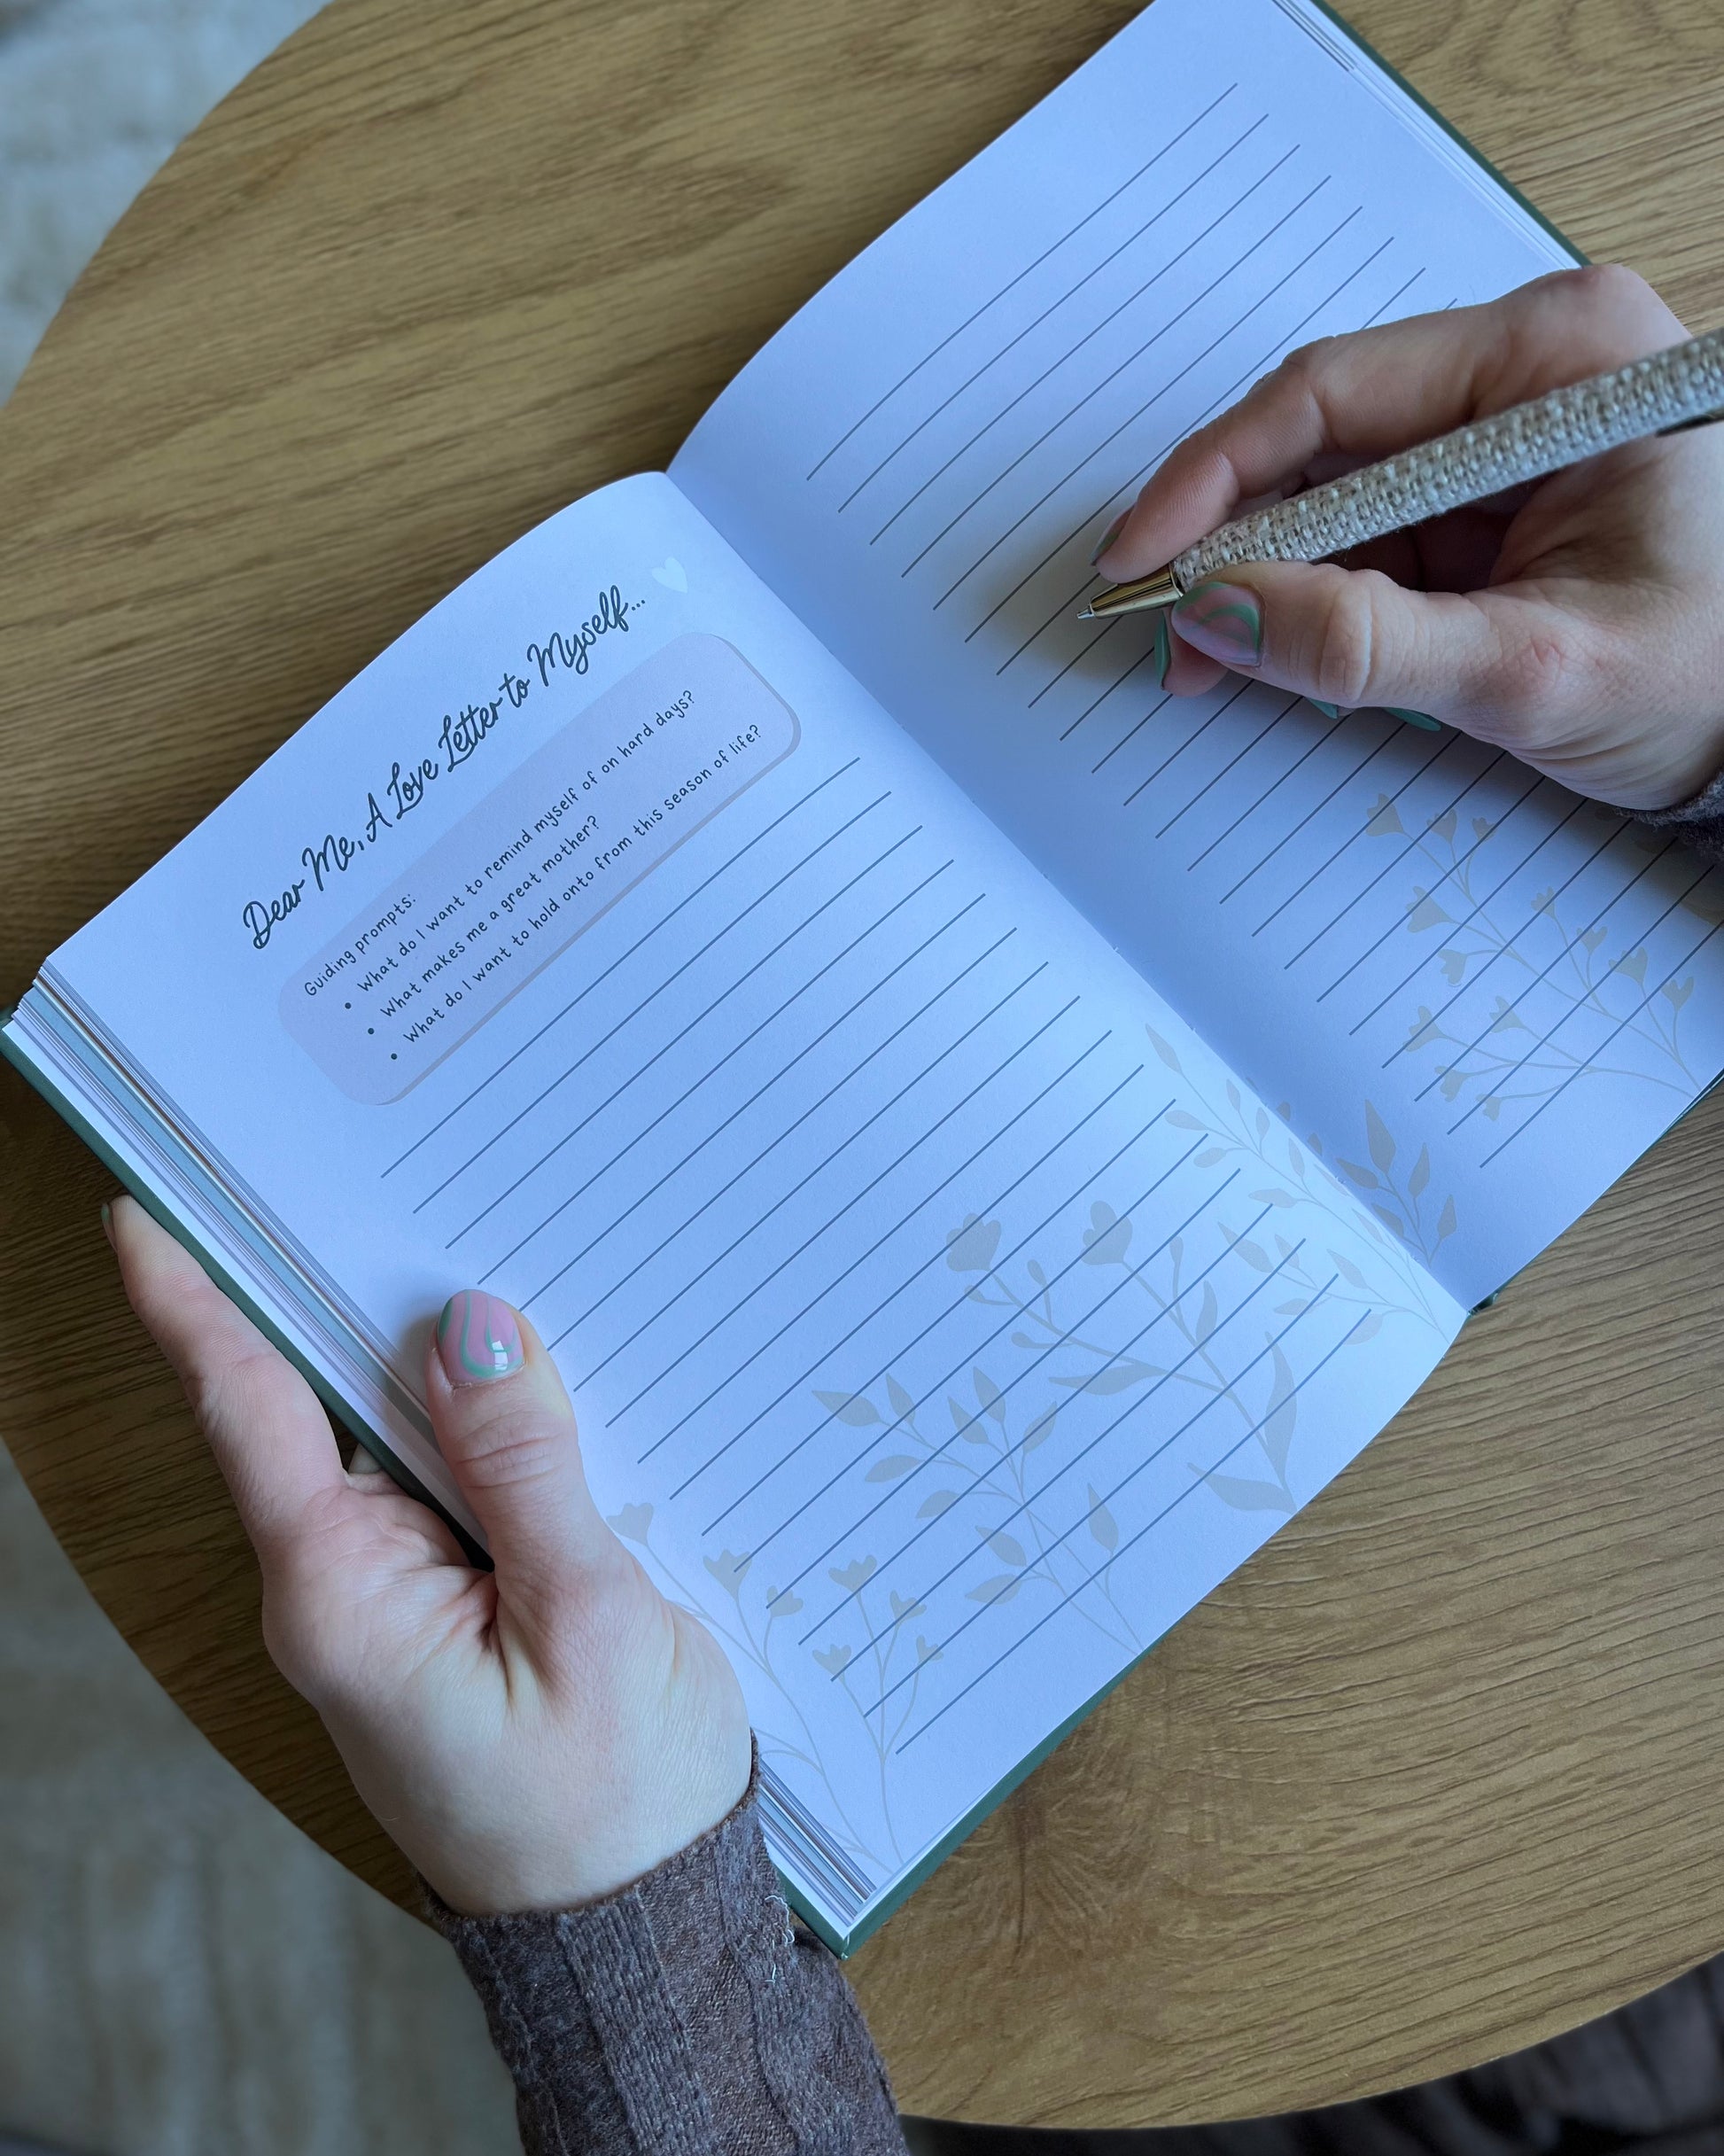 Dear Me, A Love Letter to Myself...
Guiding prompts:
• What do I want to remind myself of on hard days?
• What makes me a great mother?
• What do I want to hold onto from this season of life?